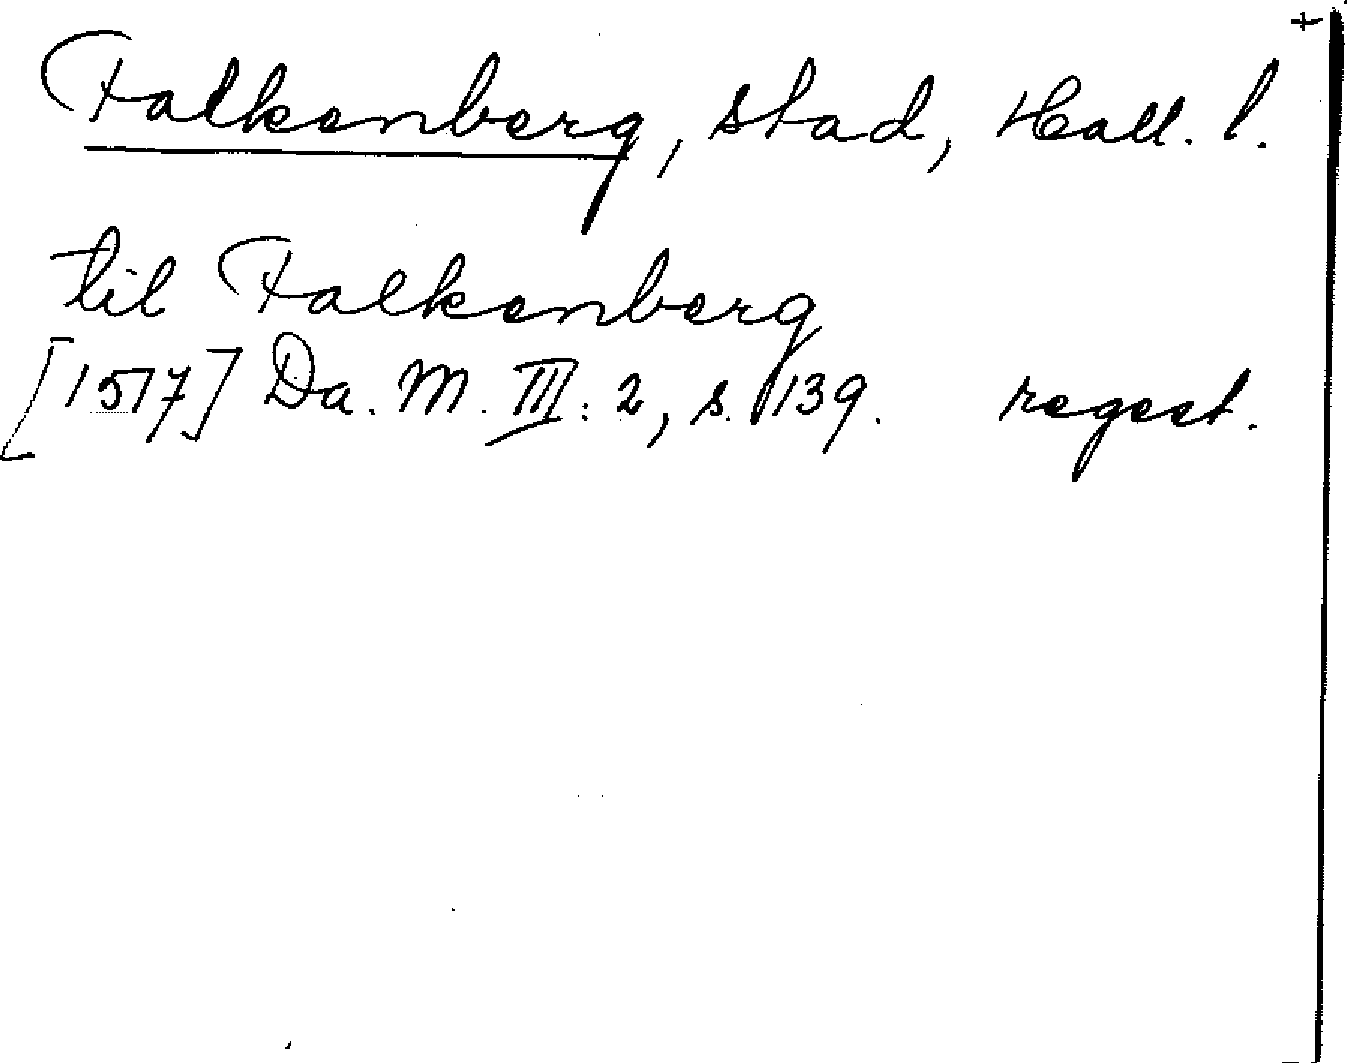 +
Falkenberg, stad, Hall. l.
til Falkenberg
[1517] Da. M. III: 2, s. 139. regest.